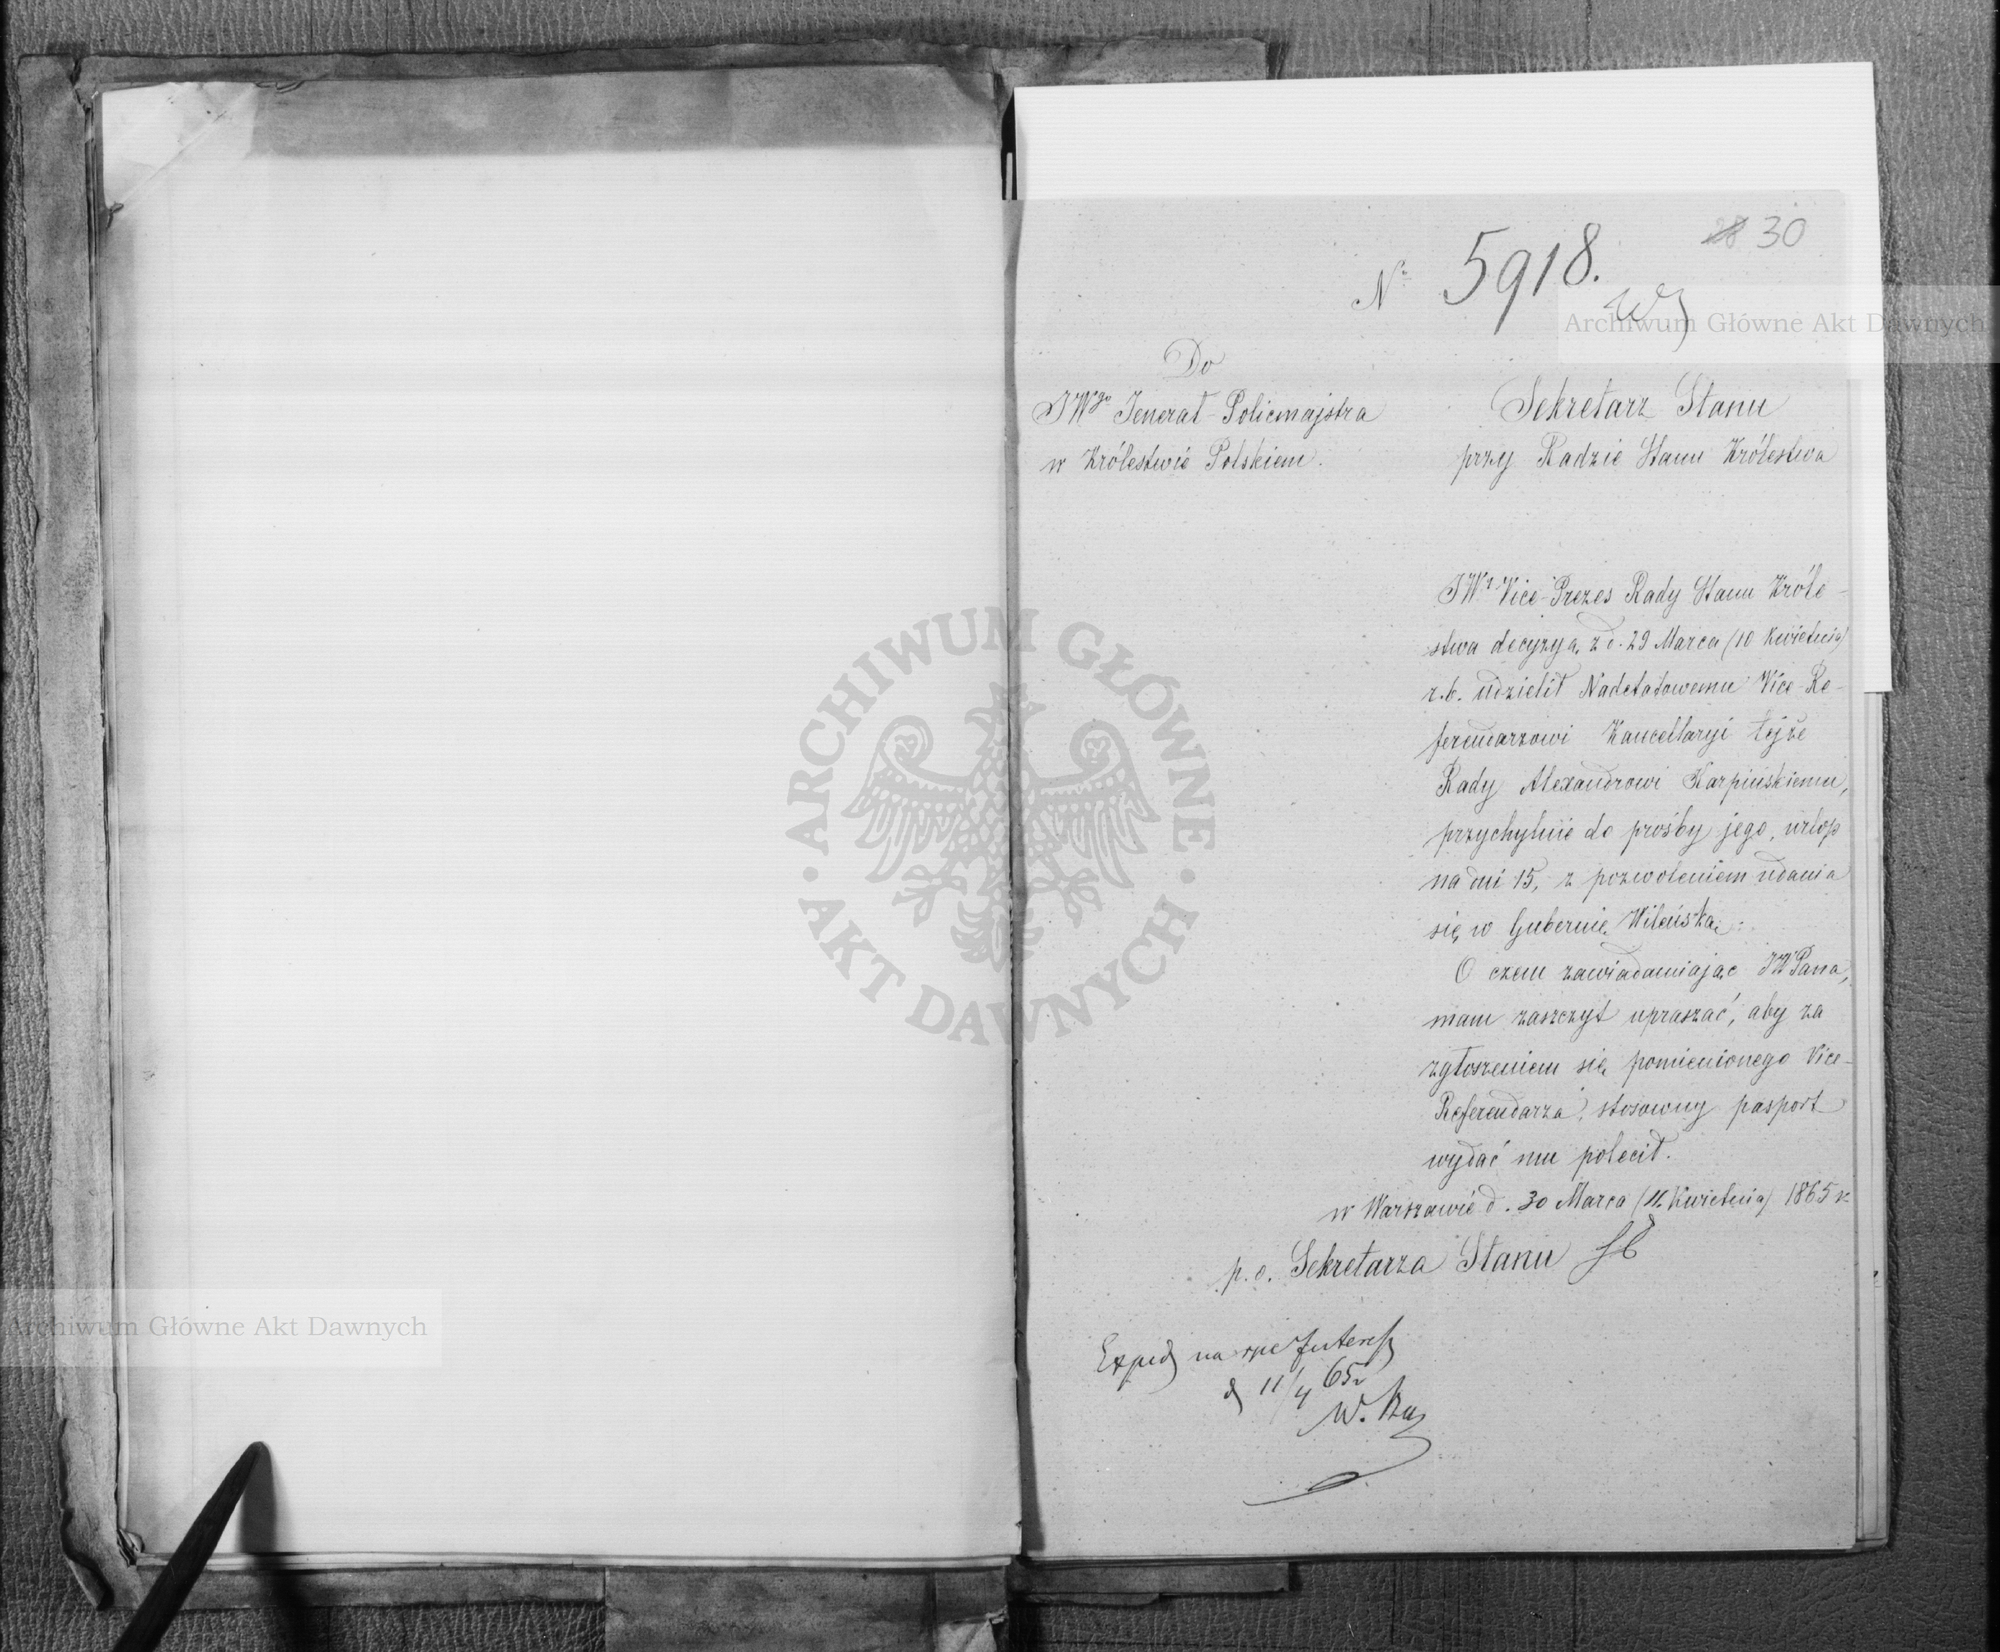 28 30
Nº 5918.
Archiwum Główne Akt Dawnych
Do
JWgo Jenerał-Policmajstra
w Królestwie Polskiem.
Sekretarz Stanu
przy Radzie Stanu Królestwa
JWy Vice-Prezes Rady Stanu Króle-
stwa decyzyą z d. 29 Marca (10 Kwietnia)
r.b. udzielił Nadetatowemu Vice-Re-
ferendarzowi Kancellaryi tejże
Rady Alexandrowi Karpińskiemu,
przychylnie do prośby jego, urlop
na dni 15, z pozwoleniem udania
się w Gubernię Wileńską.
O czem zawiadamiając JWPana,
mam zaszczyt upraszać, aby za
zgłoszeniem się pomienionego Vice-
Referendarza, stosowny pasport
wydać mu polecił.
w Warszawie d. 30 Marca (11 Kwietnia) 1865 r.
p.o. Sekretarza Stanu
Exped na ręce Interess
d 11/4 65r
ARCHIWUM GŁÓWNE
AKT DAWNYCH
Archiwum Główne Akt Dawnych